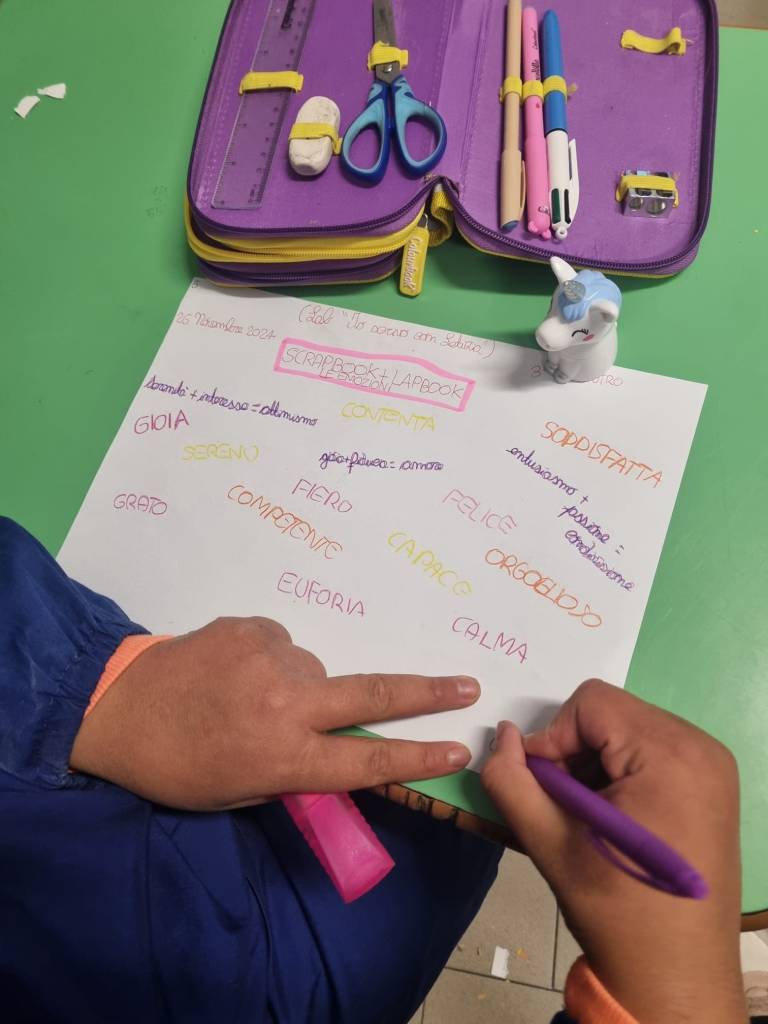 26 Novembre 2024
(Lab "Io scrivo con Letizia")
SCRAPBOOK + LAPBOOK
LE EMOZIONI
serenità + interesse = ottimismo
CONTENTA
GIOIA
SODDISFATTA
SERENO
gioia + fiducia = amore
entusiasmo +
FIERO
FELICE
GRATO
COMPETENTE
CAPACE
ORGOGLIOSO
EUFORIA
CALMA